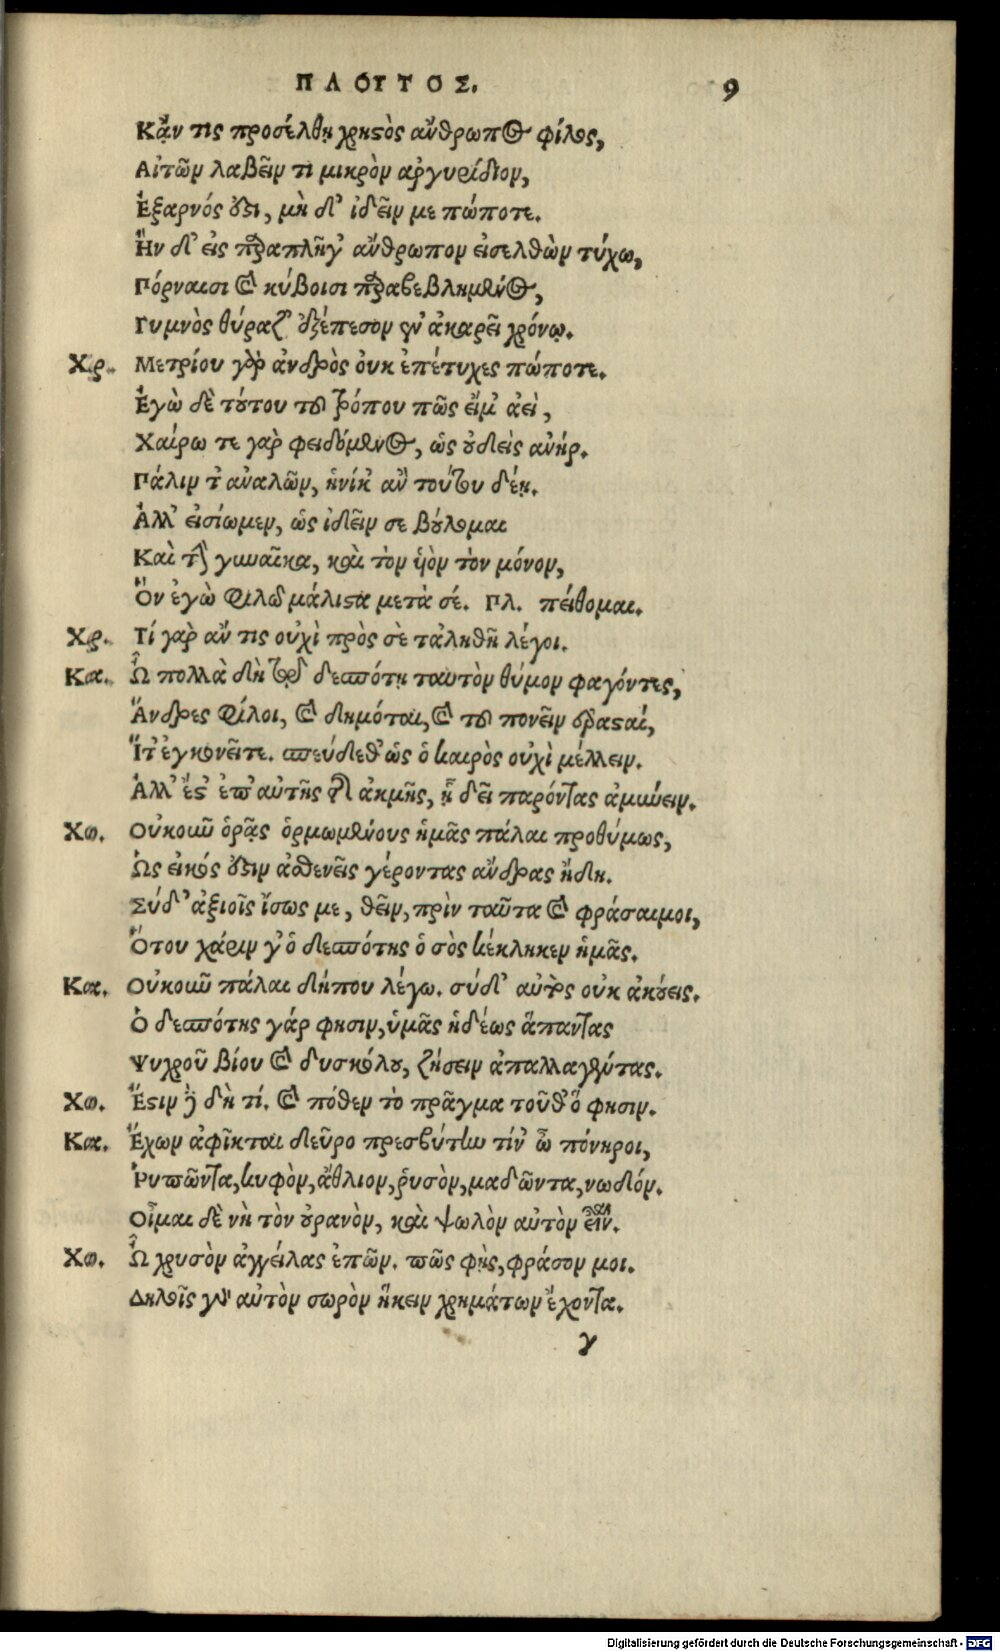 ΠΛΟΥΤΟΣ. 9
Κᾂν τις προσέλθῃ χρηστὸς ἄνθρωπος φίλος,
Αἰτῶν λαβεῖν τι μικρὸν ἀργυρίδιον,
Ἔξαρνός ἐστι, μὴ δ' ἰδεῖν με πώποτε.
Ἢν δ' εἰς παραπλῆγ' ἄνθρωπον εἰσελθὼν τύχω,
Πόρναισι καὶ κύβοισι παραβεβλημένος,
Γυμνὸς θύραζ' ἐξέπεσον ἐν ἀκαρεῖ χρόνῳ.
Χρ. Μετρίου γὰρ ἀνδρὸς οὐκ ἐπέτυχες πώποτε.
Ἐγὼ δὲ τούτου τοῦ τρόπου πῶς εἴμ' ἀεὶ,
Χαίρω τε γὰρ φειδόμενος, ὡς οὐδεὶς ἀνήρ.
Πάλιν τ' ἀναλῶν, ἡνίκ' ἂν τούτου δέῃ.
Ἀλλ' εἰσίωμεν, ὡς ἰδεῖν σε βούλομαι
Καὶ τὴν γυναῖκα, καὶ τὸν υἱὸν τὸν μόνον,
Ὃν ἐγὼ φιλῶ μάλιστα μετὰ σέ. Πλ. πείθομαι.
Χρ. Τί γὰρ ἄν τις οὐχὶ πρὸς σὲ τἀληθῆ λέγοι.
Κα. Ὦ πολλὰ δὴ τῷ δεσπότῃ ταυτὸν θύμον φαγόντες,
Ἄνδρες φίλοι, καὶ δημόται, καὶ τοῦ πονεῖν ἐρασταί,
Ἴτ' ἐγκονεῖτε. σπεύδεθ' ὡς ὁ καιρὸς οὐχὶ μέλλειν.
Ἀλλ' ἔστ' ἐπ' αὐτῆς τῆς ἀκμῆς, ᾗ δεῖ παρόντας ἀμύνειν.
Χο. Οὐκοῦν ὁρᾷς ὁρμωμένους ἡμᾶς πάλαι προθύμως,
Ὡς εἰκός ἐστιν ἀσθενεῖς γέροντας ἄνδρας ἤδη.
Σύδ' ἀξιοῖς ἴσως με, θεῖν, πρὶν ταῦτα καὶ φράσαιμοι,
Ὅτου χάριν γ' ὁ δεσπότης ὁ σὸς κέκληκεν ἡμᾶς.
Κα. Οὐκοῦν πάλαι δήπου λέγω. σύδ' αὐτὸς οὐκ ἀκούεις.
Ὁ δεσπότης γάρ φησιν, ὑμᾶς ἡδέως ἅπαντας
Ψυχροῦ βίου καὶ δυσκόλου, ζήσειν ἀπαλλαγέντας.
Χο. Ἔστιν δὲ δὴ τί. καὶ πόθεν τὸ πρᾶγμα τοῦθ' ὅ φησιν.
Κα. Ἔχων ἀφῖκται δεῦρο πρεσβύτην τίν' ὦ πόνηροι,
Ῥυπῶντα, κυφὸν, ἄθλιον, ῥυσὸν, μαδῶντα, νωδόν.
Οἶμαι δὲ νὴ τὸν οὐρανὸν, καὶ ψωλὸν αὐτὸν εἶναι.
Χο. Ὦ χρυσὸν ἀγγείλας ἐπῶν. πῶς φὴς, φράσον μοι.
Δηλοῖς γὰρ αὐτὸν σωρὸν ἥκειν χρημάτων ἔχοντα.
γ
Digitalisierung gefördert durch die Deutsche Forschungsgemeinschaft - DFG